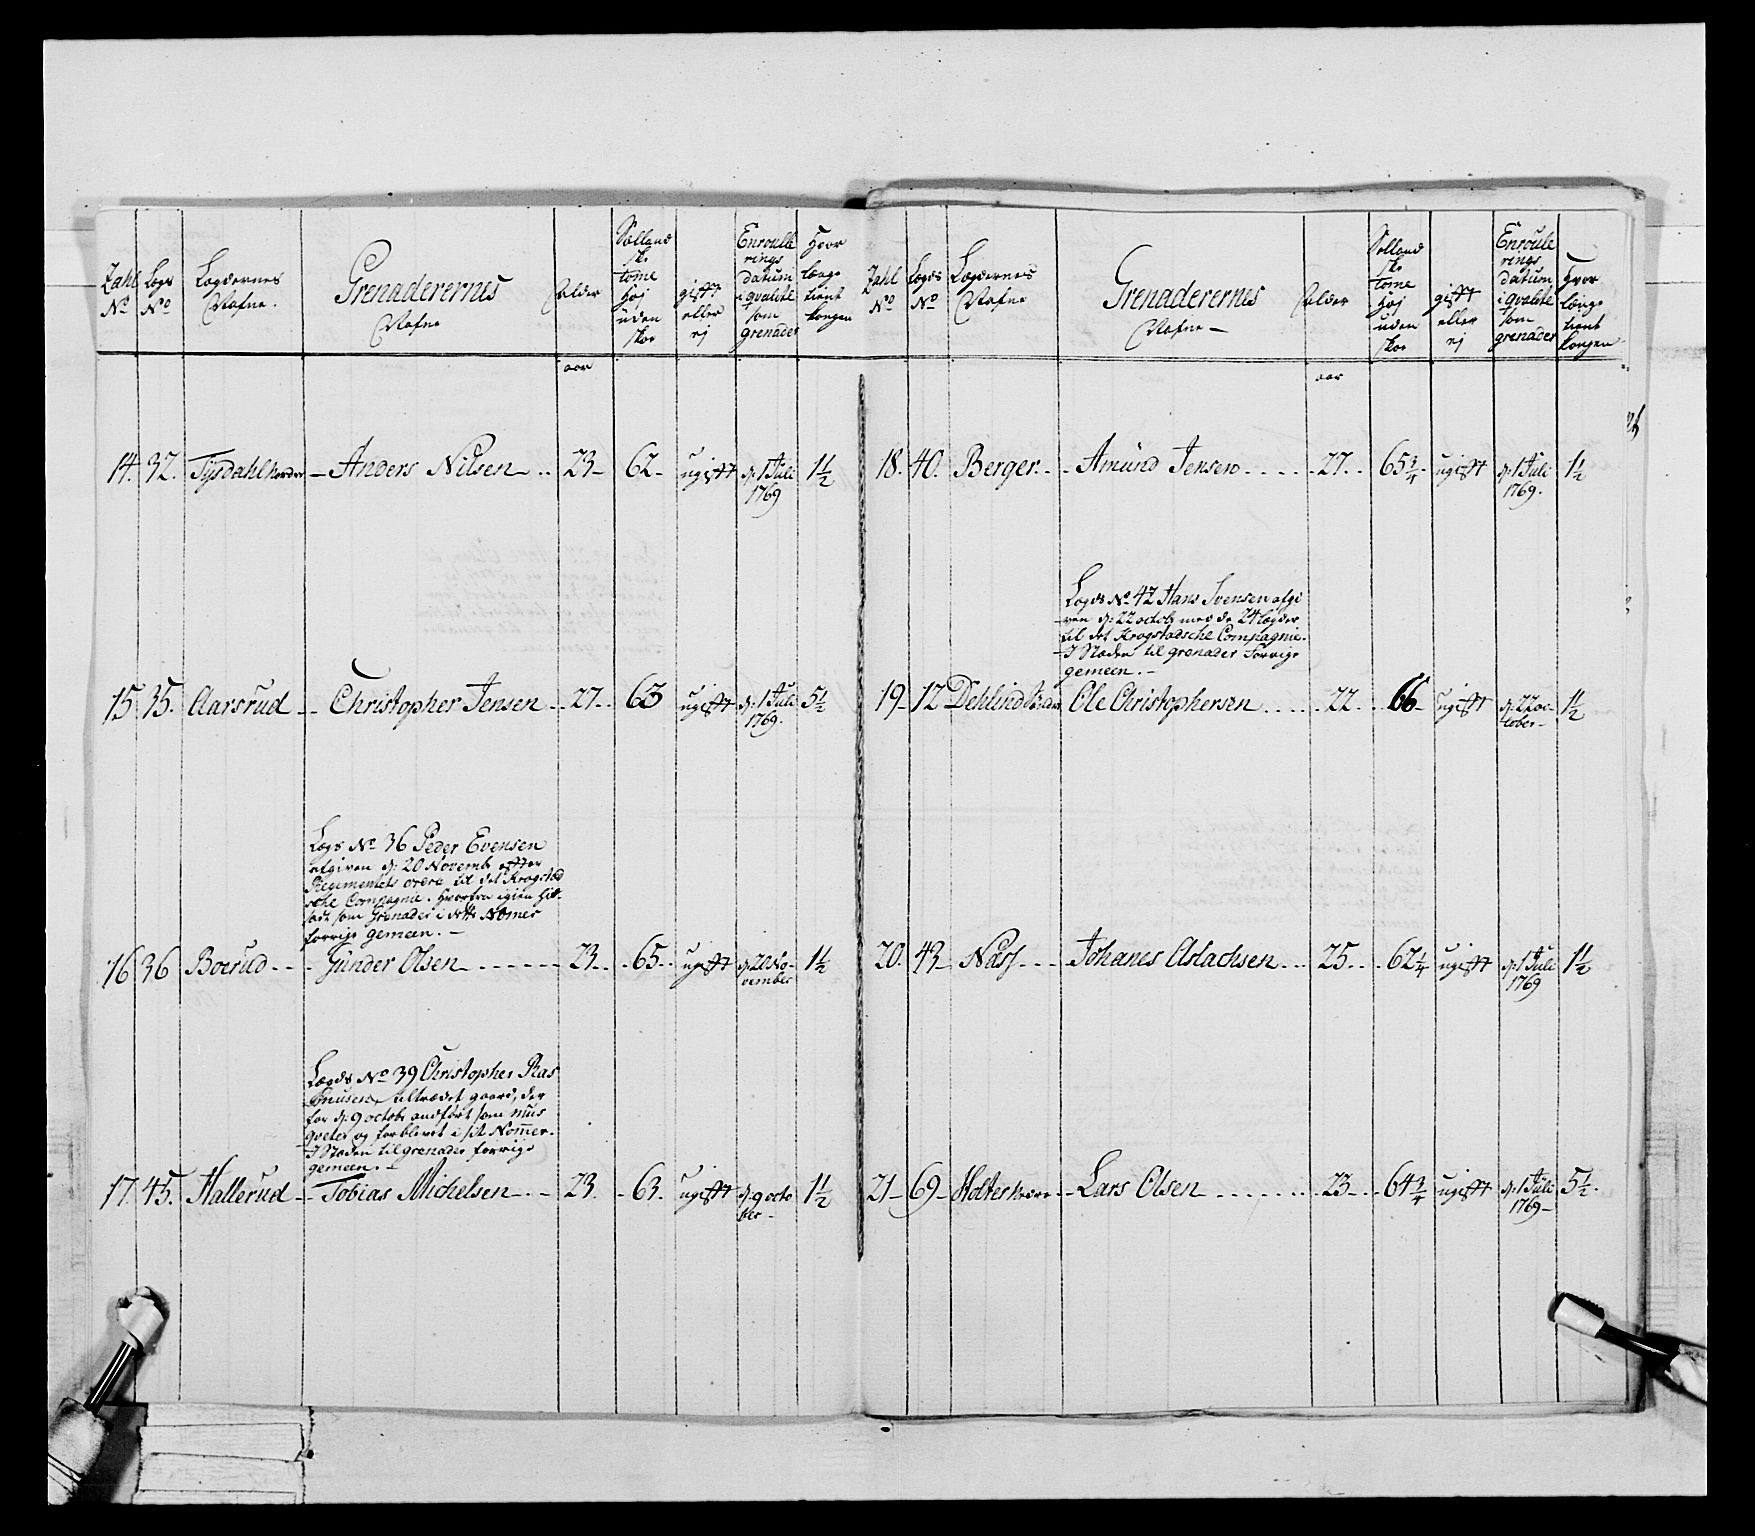 Zahl No
Legs No
Legdernes Nafne.
Grenaderernes Nafne
Alder
Sellandske tome høj uden skoe
gifft eller ej
Enroullerings datum i qvalité som grenader
Hvor lenge tient kongen
aar
14. 32. Tysdahl Nordre Anders Nilsen 23 62 ugifft d: 1 Juli 1769 1½
15 35. Aarsrud Christopher Jensen 27 63 ugifft d: 1 Juli 1769. 5½
Legs No 36 Peder Evensen
afgiven d: 20 Novemb. efter
Regimentets ordre til det Krogstad
sche Compagnie. Hvorfra igien hid-
sadt som Grenader i dette Nomer
forrige gemeen.
16 36 Boerud Gunder Olsen 23 65 ugifft d: 20 November 1½
Legds No 39 Christopher Ras
musen, tiltrædet gaard, der
for d: 9 octobr andført som mus
qveter og forblevet i sit Nommer.
I Steden til grenader forrige
gemeen.
17 45. Hallerud Tobias Michelsen 23. 63. ugifft d: 9 october 1½
Zahl No
Legds No
Legdernes Nafne
Grenaderernes Nafne
Alder
Sellandske tome høj uden skoe
gifft eller ej
Enroulerings datum i qvalite som grenader
Hvor lenge tient kongen
aar
18. 40. Berger Amund Jensen 27 65¾ ugifft d: 1 Juli 1769. 1½
Legds No 42 Hans Svensen afgi
ven d: 22 octob med de 24 legder
til det Krogstadsche Compagnie.
I Steden til grenader Forrige
gemeen.
19 12 Dehlind Ole Christophersen 22 66 ugifft d: 22 october 1½
20. 43 Næss Johanes Aslachsen 25 62¼ ugifft d: 1 Juli 1769 1½
21 69 Holter Lars Olsen 23 64¾ ugifft d: 1 Juli 1769 5½.